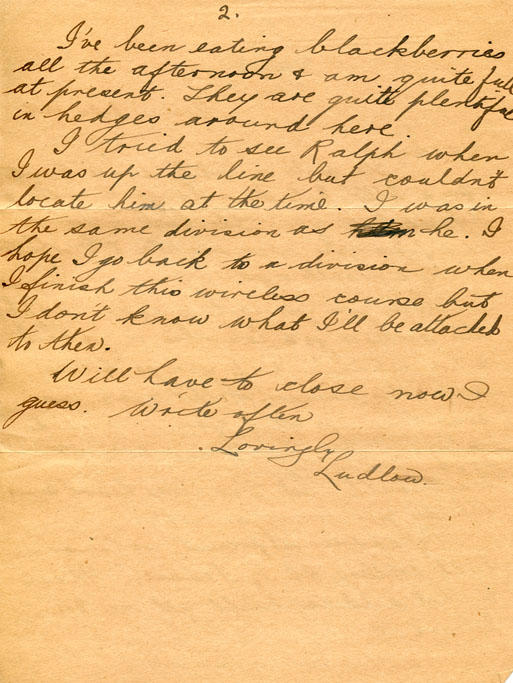 2.
I've been eating blackberries
all the afternoon & am quite full
at present. They are quite plentiful
in hedges around here.
I tried to see Ralph when
I was up the line but couldn't
locate him at the time. I was in
the same division as he. I
hope I go back to a division when
I finish this wireless course but
I don't know what I'll be attached
to then.
Will have to close now I
guess. Write often
Lovingly
Ludlow.